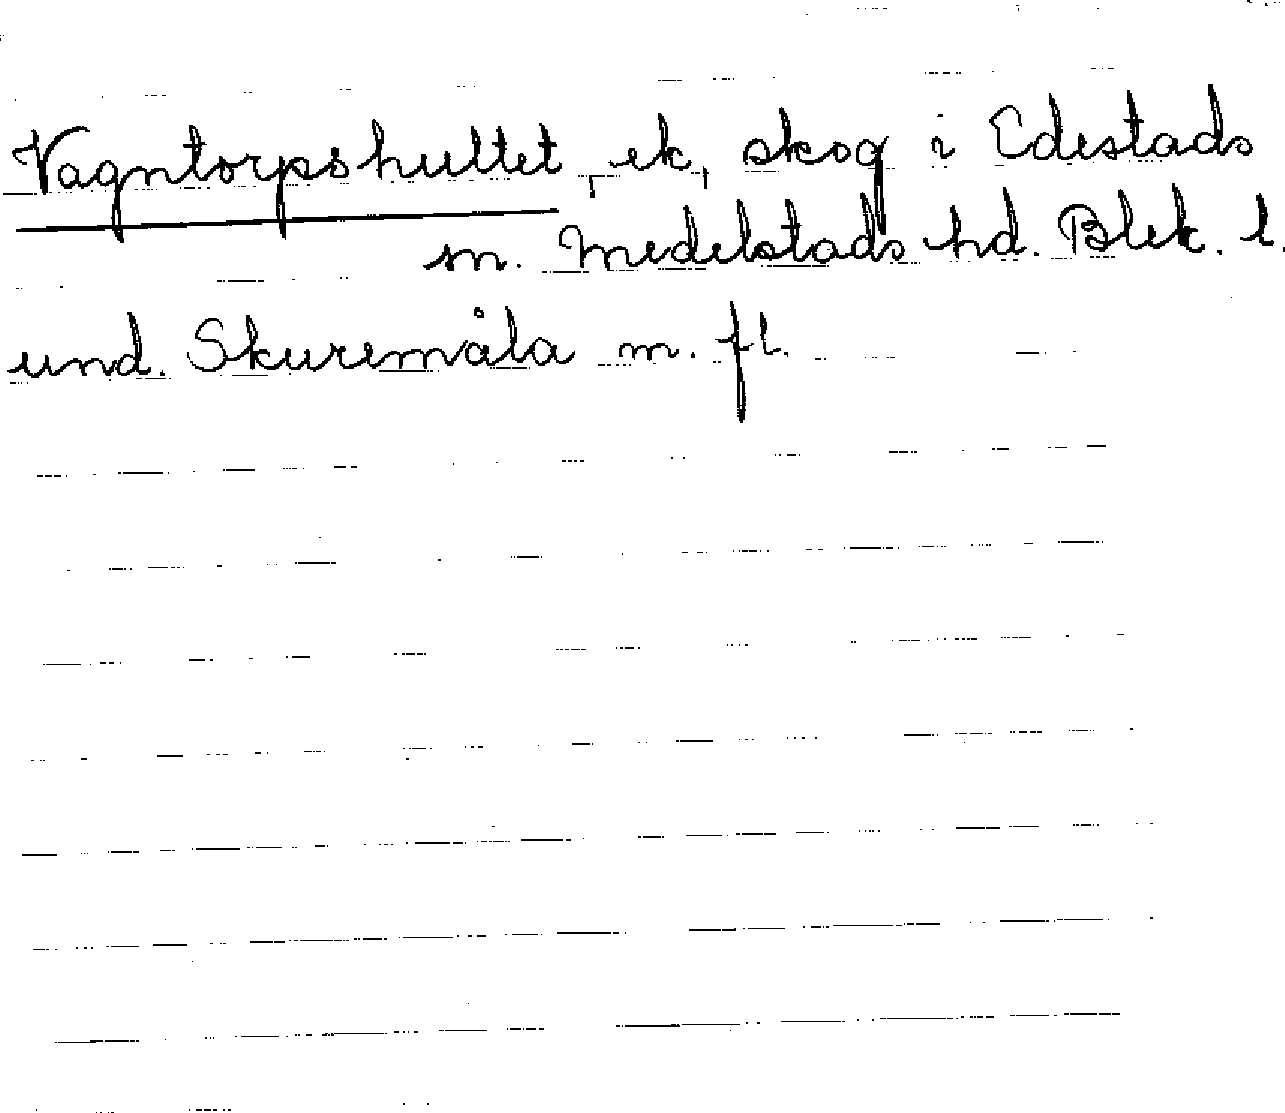 Vagntorpshultet, ek, skog i Edestads
sn. Medelstads hd. Blek. l.
und. Skuremåla m. fl.